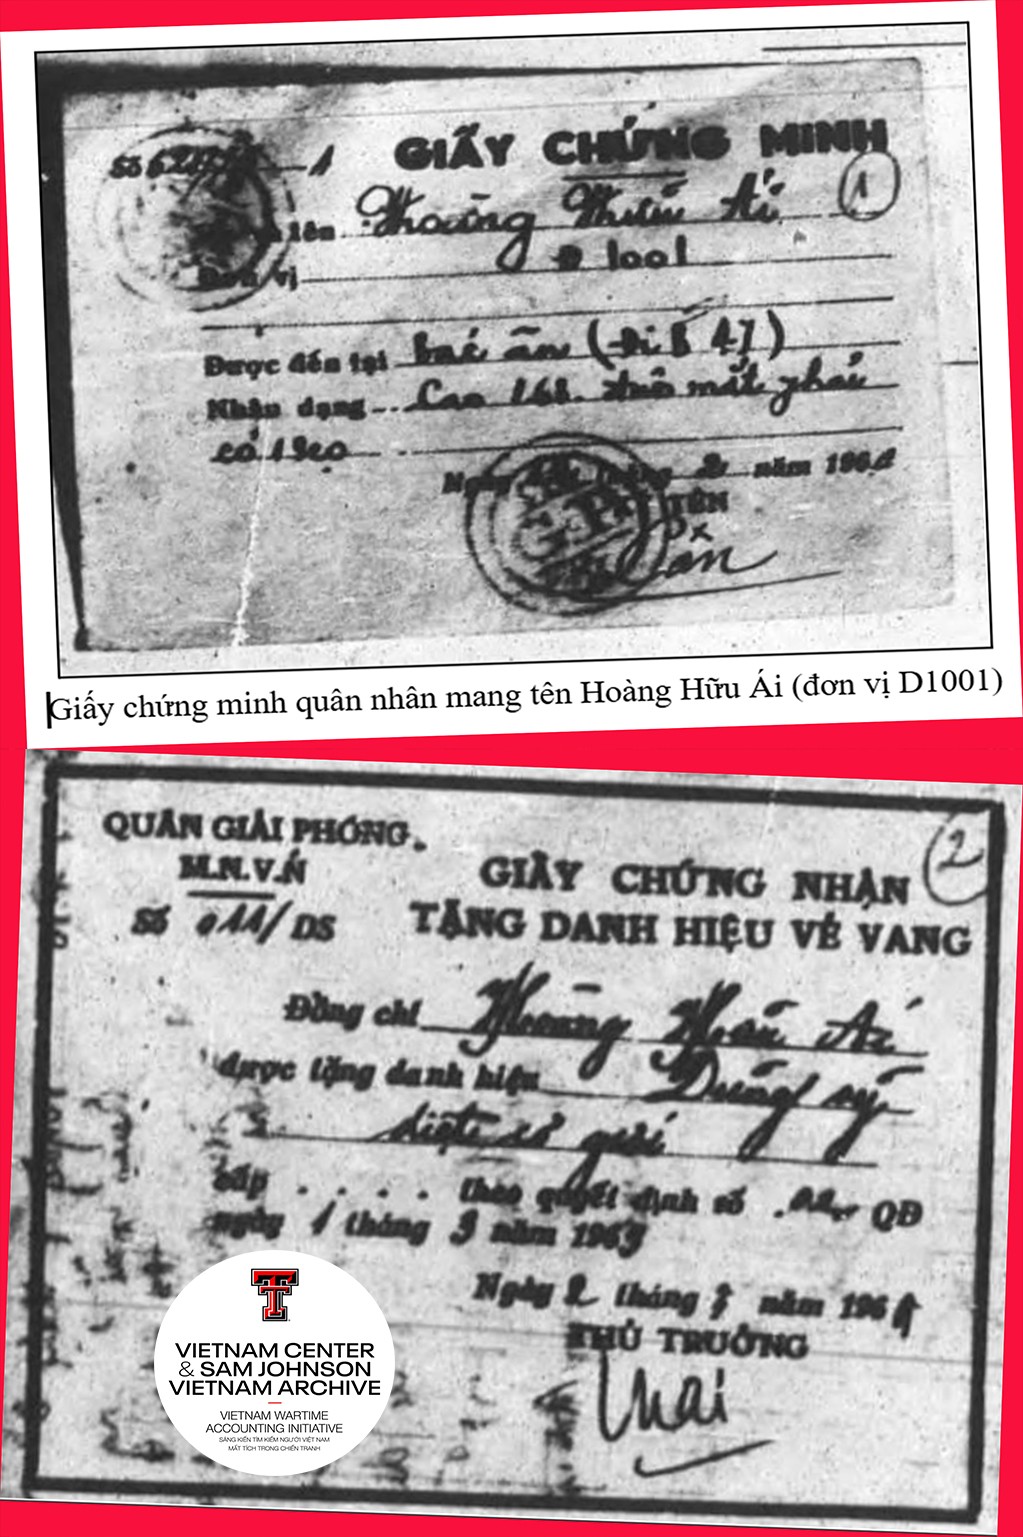 GIẤY CHỨNG MINH
1
Số 1
tên Hoàng Hữu Ái
vị 1001
Được đến tại bác ân (Đi B 47)
Nhận dạng Cao 168. đuôi mắt phải
có 1 sẹo
Ngày tháng 2 năm 196
TÊN
Giấy chứng minh quân nhân mang tên Hoàng Hữu Ái (đơn vị D1001)
QUÂN GIẢI PHÓNG
M.N.V.N
Số 011/DS
2
GIẤY CHỨNG NHẬN
TẶNG DANH HIỆU VẺ VANG
Đồng chí Hoàng Hữu Ái
được tặng danh hiệu Dũng sỹ
diệt cơ giới
cấp . . . . theo quyết định số QĐ
ngày 1 tháng 3 năm 196
Ngày 2 tháng 3 năm 196
THỦ TRƯỞNG
VIETNAM CENTER
& SAM JOHNSON
VIETNAM ARCHIVE
VIETNAM WARTIME
ACCOUNTING INITIATIVE
SÁNG KIẾN TÌM KIẾM NGƯỜI VIỆT NAM
MẤT TÍCH TRONG CHIẾN TRANH